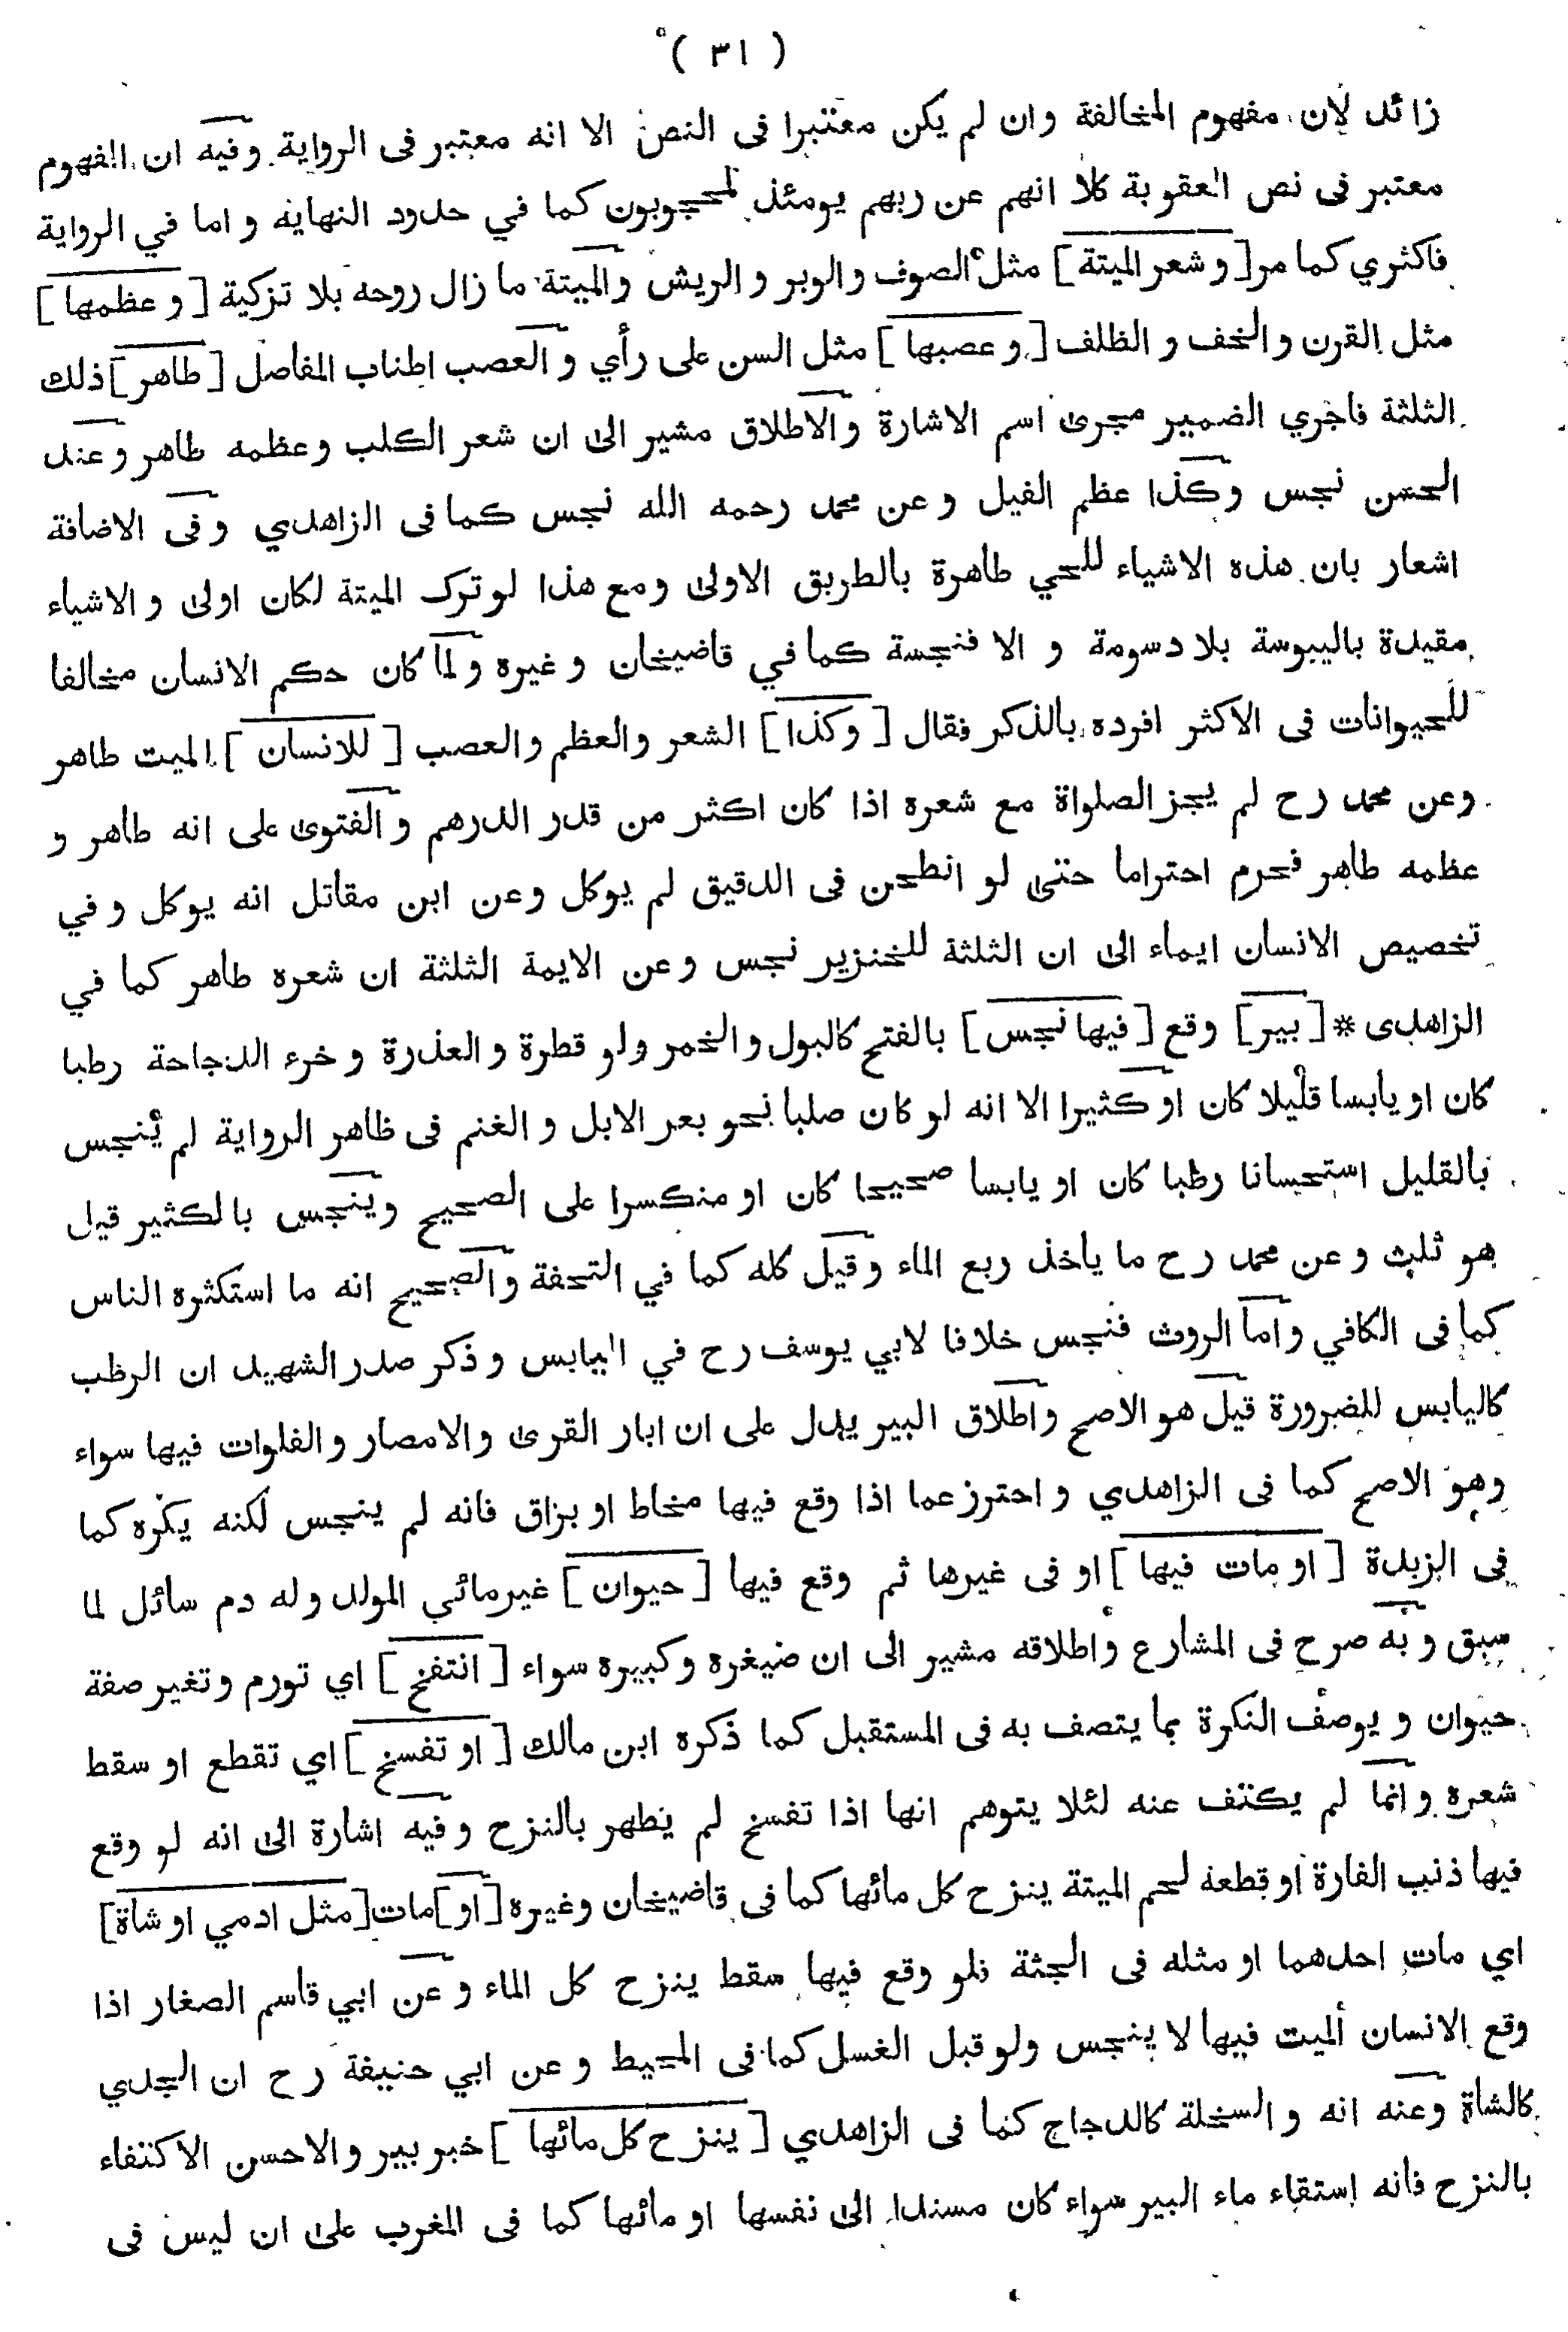 ( ٣١ )
زائد لان مفهوم المخالفة وان لم يكن معتبرا فى النص الا انه معتبر فى الرواية وفيه ان المفهوم
معتبر فى نص العقوبة كلا انهم عن ربهم يومئذ لمحجوبون كما في حدود النهاية و اما في الرواية
فاكثري كما مر [ و شعر الميتة ] مثل الصوف و الوبر و الريش والميتة ما زال روحه بلا تزكية [ و عظمها ]
مثل القرن و الخف و الظلف [ و عصبها ] مثل السن على رأي و العصب اطناب المفاصل [ طاهر ] ذلك
الثلثة فاجري الضمير مجرى اسم الاشارة والاطلاق مشير الى ان شعر الكلب وعظمه طاهر وعند
الحسن نجس وكذا عظم الفيل وعن محمد رحمه الله نجس كما فى الزاهدي وفى الاضافة
اشعار بان هذه الاشياء للحي طاهرة بالطريق الاولى ومع هذا لو ترك الميتة لكان اولى و الاشياء
مقيدة باليبوسة بلا دسومة و الا فنجسة كما في قاضيخان و غيره ولما كان حكم الانسان مخالفا
للحيوانات فى الاكثر افرده بالذكر فقال [ وكذا ] الشعر والعظم والعصب [ للانسان ] الميت طاهر
وعن محمد رح لم يجز الصلواة مع شعره اذا كان اكثر من قدر الدرهم والفتوى على انه طاهر و
عظمه طاهر فحرم احتراما حتى لو انطحن فى الدقيق لم يوكل وعن ابن مقاتل انه يوكل وفي
تخصيص الانسان ايماء الى ان الثلثة للخنزير نجس وعن الايمة الثلثة ان شعره طاهر كما في
الزاهدى * [ بير ] وقع [ فيها نجس ] بالفتح كالبول والخمر ولو قطرة والعذرة و خرء الدجاجة رطبا
كان او يابسا قليلا كان او كثيرا الا انه لو كان صلبا نحو بعر الابل و الغنم فى ظاهر الرواية لم ينجس
بالقليل استحسانا رطبا كان او يابسا صحيحا كان او منكسرا على الصحيح وينجس بالكثير قيل
هو ثلث وعن محمد رح ما يأخذ ربع الماء وقيل كله كما في التحفة والصحيح انه ما استكثره الناس
كما فى الكافي واما الروث فنجس خلافا لابي يوسف رح في اليابس و ذكر صدر الشهيد ان الرطب
كاليابس للضرورة قيل هو الاصح واطلاق البير يدل على ان ابار القرى والامصار والفلوات فيها سواء
وهو الاصح كما فى الزاهدي و احترز عما اذا وقع فيها مخاط او بزاق فانه لم ينجس لكنه يكره كما
فى الزبدة [ او مات فيها ] او فى غيرها ثم وقع فيها [ حيوان ] غير مائي المولد وله دم سائل لما
سبق و به صرح فى المشارع واطلاقه مشير الى ان صغيره وكبيره سواء [ انتفخ ] اي تورم وتغير صفة
حيوان و يوصف النكرة بما يتصف به فى المستقبل كما ذكره ابن مالك [ او تفسخ ] اي تقطع او سقط
شعره وانما لم يكتف عنه لئلا يتوهم انها اذا تفسخ لم يطهر بالنزح وفيه اشارة الى انه لو وقع
فيها ذنب الفارة او قطعة لحم الميتة ينزح كل مائها كما فى قاضيخان وغيره [ او ] مات [ مثل ادمي او شاة ]
اي مات احدهما او مثله فى الجثة فلو وقع فيها سقط ينزح كل الماء وعن ابي قاسم الصغار اذا
وقع الانسان الميت فيها لا ينجس ولو قبل الغسل كما فى المحيط و عن ابي حنيفة رح ان الجدي
كالشاة وعنه انه و السخلة كالدجاج كما فى الزاهدي [ ينزح كل مائها ] خبر بير والاحسن الاكتفاء
بالنزح فانه استقاء ماء البير سواء كان مسندا الى نفسها او مائها كما فى المغرب على ان ليس فى